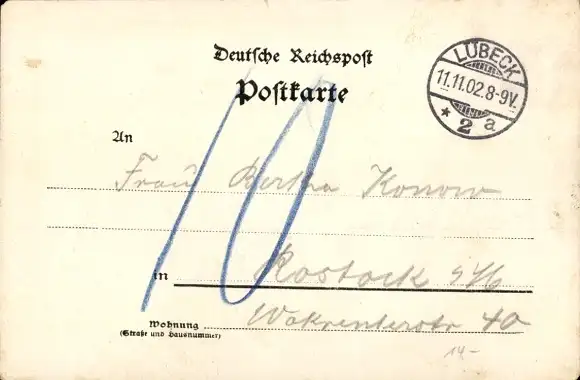 Deutsche Reichspost
Postkarte
LÜBECK
11.11.02.8-9V.
* 2 a
An
Frau Bertha Konow
10
in Rostock i/M
Wokrenterstr 40
Wohnung
(Straße und Hausnummer)
14-